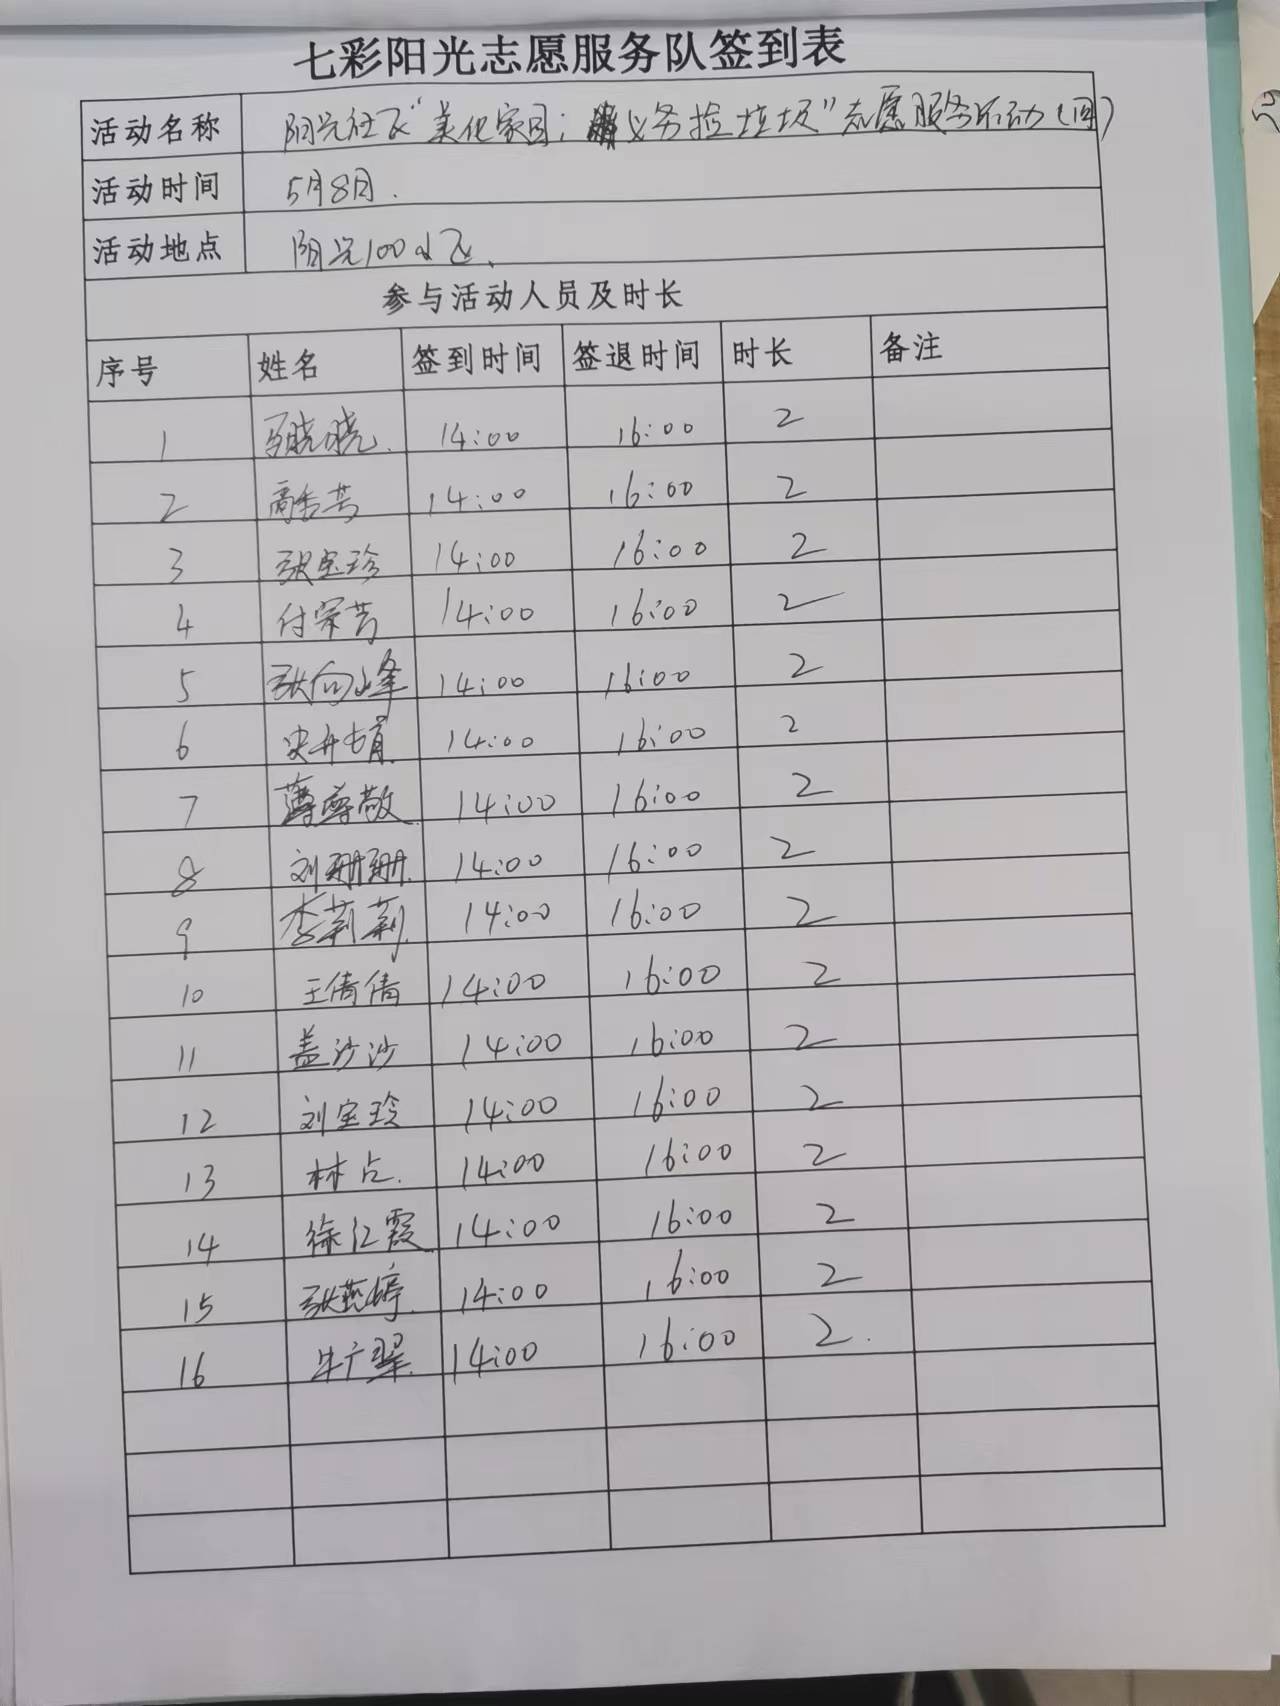 七彩阳光志愿服务队签到表
活动名称 阳光社区“美化家园；义务捡垃圾”志愿服务活动（四）
活动时间 5月8日.
活动地点 阳光100小区.
参与活动人员及时长
序号 姓名 签到时间 签退时间 时长 备注
1 晓晓. 14:00 16:00 2
2 高 14:00 16:00 2
3 张宝珍 14:00 16:00 2
4 付荣芳 14:00 16:00 2
5 张向峰 14:00 16:00 2
6 史 14:00 16:00 2
7 薄尊敬 14:00 16:00 2
8 刘珊珊. 14:00 16:00 2
9 李莉莉. 14:00 16:00 2
10 王倩倩 14:00 16:00 2
11 盖沙沙 14:00 16:00 2
12 刘宝玲 14:00 16:00 2
13 林占. 14:00 16:00 2
14 徐红霞 14:00 16:00 2
15 张燕婷. 14:00 16:00 2
16 牛广翠. 14:00 16:00 2.